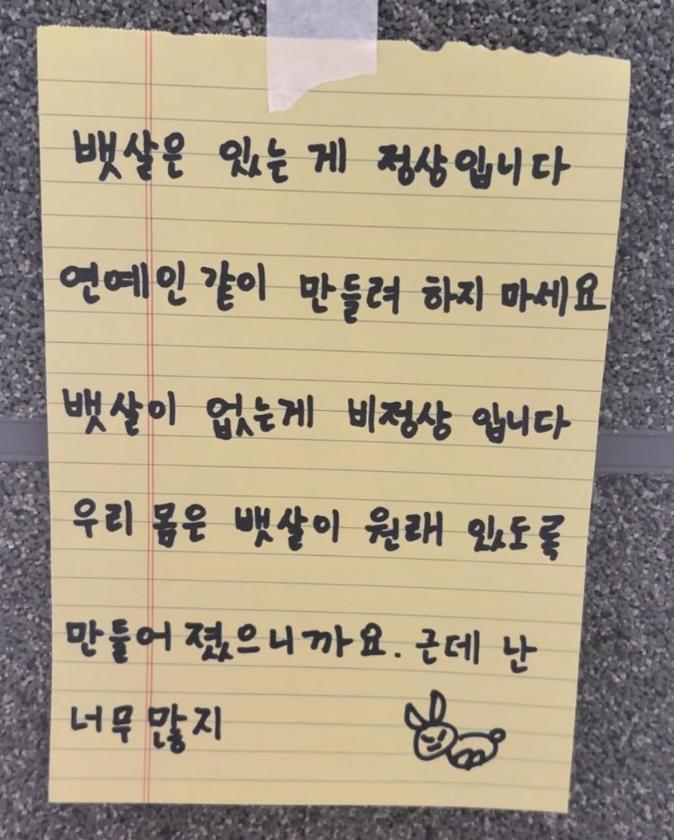 뱃살은 있는 게 정상입니다
연예인같이 만들려 하지 마세요
뱃살이 없는게 비정상 입니다
우리 몸은 뱃살이 원래 있도록
만들어 졌으니까요. 근데 난
너무 많지